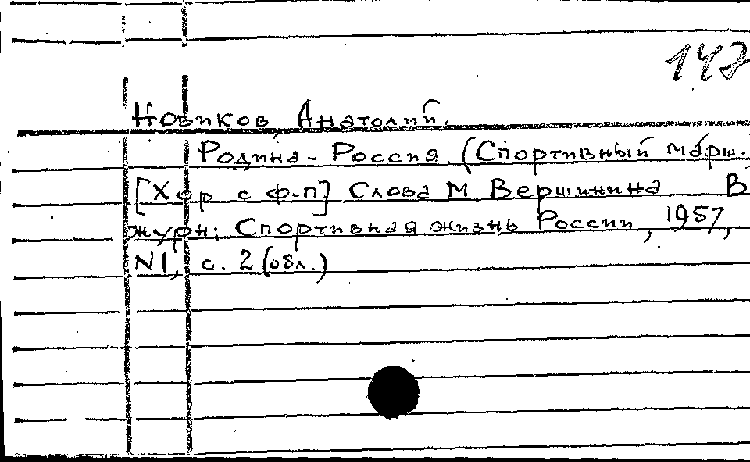 147
Новиков, Анатолий.
Родина - Россия (Спортивный марш.
[Хор с ф-п] Слова М. Вершинина В
журн: Спортивная жизнь России, 1957,
N1, с. 2 (обл.)